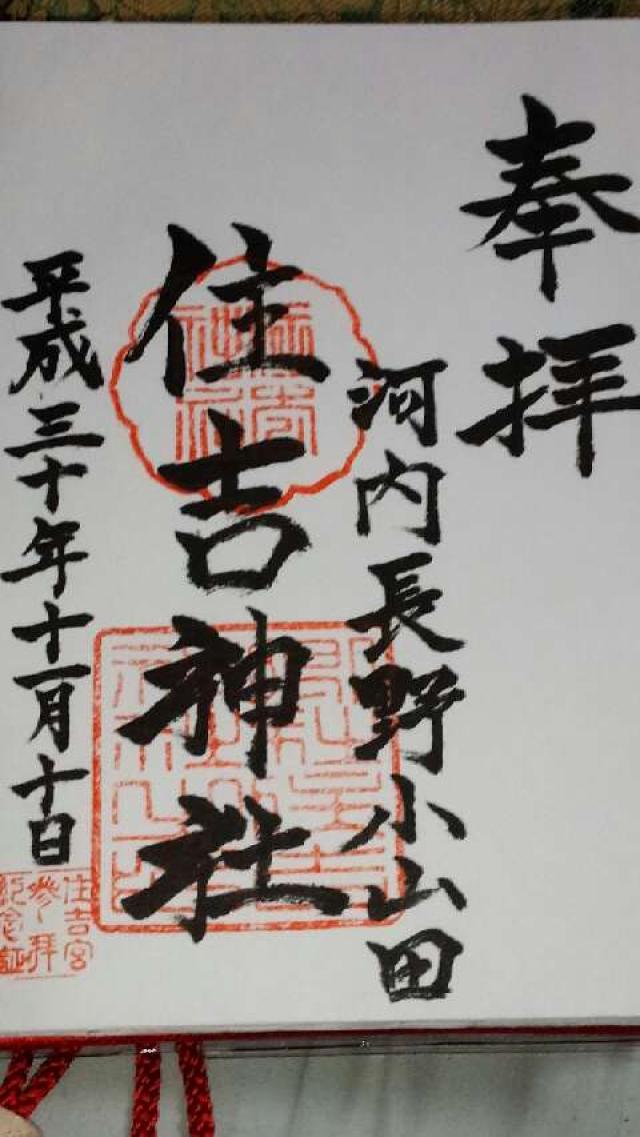 奉拝
河内長野小山田
住吉神社
平成三十年十一月十日
住吉宮
参拜
紀念証